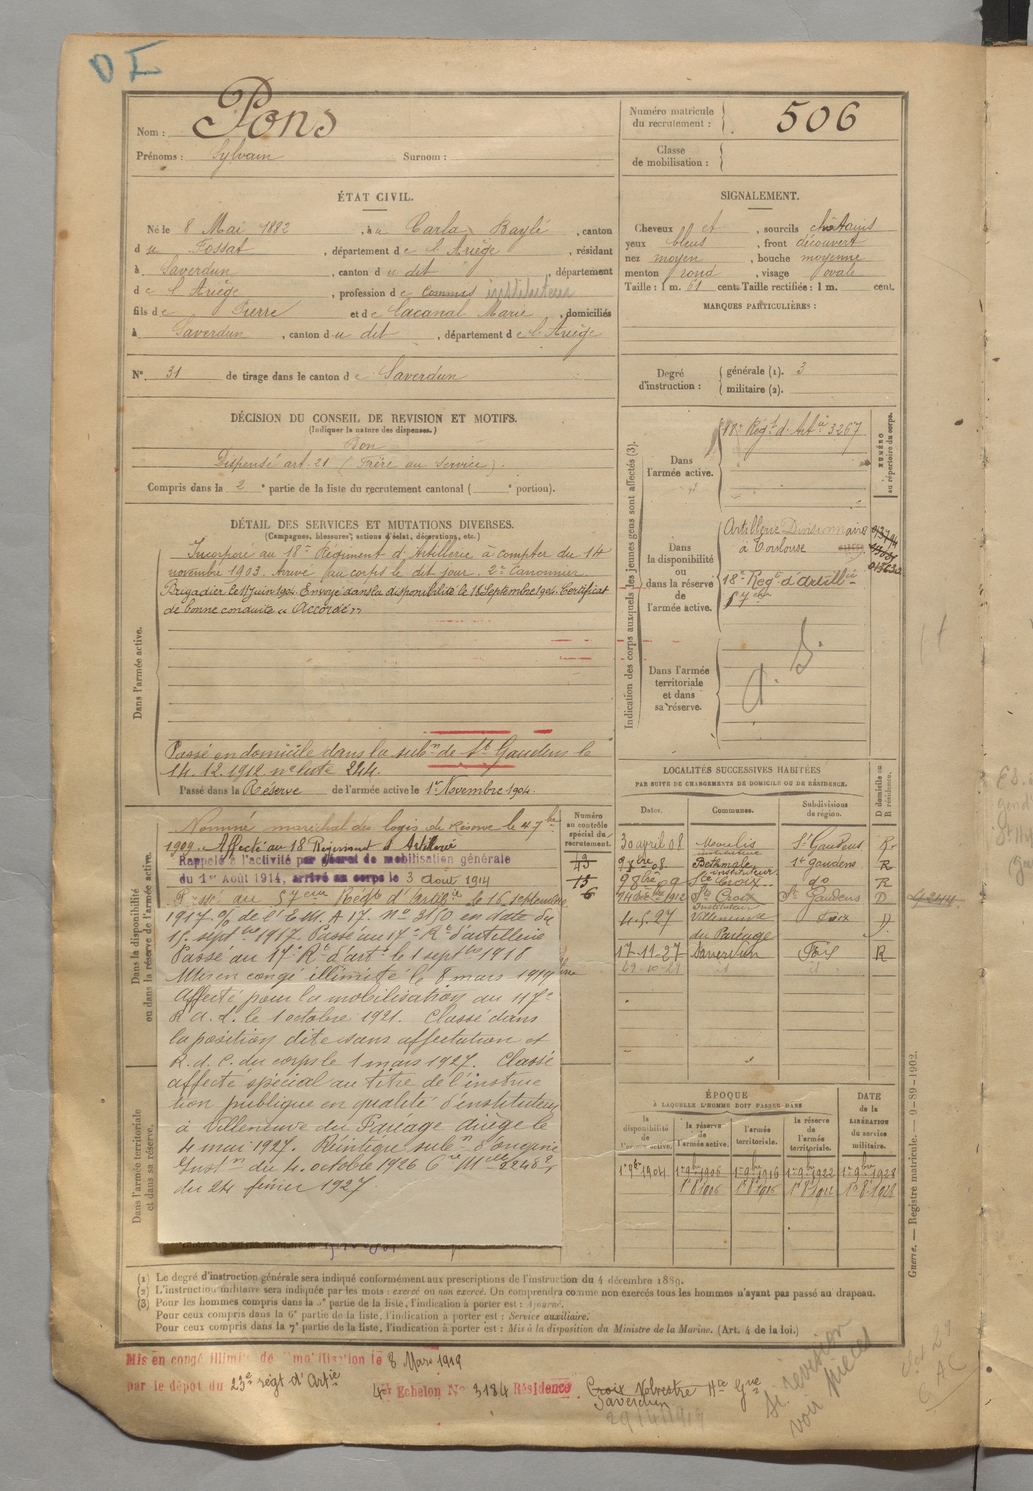 DI
Nom : Pons
Prénoms : Sylvain Surnom :
Numéro matricule du recrutement : 506
Classe de mobilisation :
ÉTAT CIVIL.
Né le 8 Mai 1882, à u Carla Baylé, canton
du Fossat, département de l'Ariège, résidant
à Saverdun, canton du dit, département
de l'Ariège, profession de Commis instituteur
fils de Pierre et de Lacanal Marie, domiciliés
à Saverdun, canton du dit, département de l'Ariège
N° 31 de tirage dans le canton de Saverdun
SIGNALEMENT.
Cheveux et, sourcils châtains
yeux bleus, front découvert
nez moyen, bouche moyenne
menton rond, visage ovale
Taille : 1 m. 61 cent. Taille rectifiée : 1 m. cent.
MARQUES PARTICULIÈRES :
Degré d'instruction : générale (1). 3
militaire (2).
DÉCISION DU CONSEIL DE REVISION ET MOTIFS.
(Indiquer la nature des dispenses.)
Bon
Dispensé art. 21 (Frère au service).
Compris dans la 2e partie de la liste du recrutement cantonal ( e portion).
DÉTAIL DES SERVICES ET MUTATIONS DIVERSES.
(Campagnes, blessures, actions d'éclat, décorations, etc.)
Dans l'armée active.
Incorporé au 18e Régiment d'Artillerie à compter du 14
novembre 1903. Arrivé au corps le dit jour. 2e Canonnier
Brigadier le 11 juin 1904. Envoyé dans la disponibilité le 18 Septembre 1904. Certificat
de bonne conduite "Accordé"
Passé en domicile dans la subon de St Gaudens le
14.12.1912 ne liste 244.
Passé dans la Réserve de l'armée active le 1er Novembre 1904.
Dans la disponibilité ou dans la réserve de l'armée active.
Nommé maréchal des logis de Réserve le 4 7bre
1909. Affecté au 18 Régiment d'Artillerie
Rappelé à l'activité par décret de mobilisation générale
du 1er Août 1914, arrivé au corps le 3 Août 1914
Passé au 57eme Régt d'Artillerie le 16 septembre
1917 o/ de l'E.M.A 17. No 3150 en date du
15 septbre 1917. Passé au 17e Rt d'artillerie
Passé au 17e Rt d'artie le 1 septbre 1918
Mis en congé illimité le 8 mars 1919
Affecté pour la mobilisation au 117e
R.A.L. le 1 octobre 1921. Classé dans
la position dite sans affectation et
R.d.C. du corps le 1 mars 1927. Classé
affecté spécial au titre de l'instruc
tion publique en qualité d'instituteur
à Villeneuve du Paréage Ariège le
4 mai 1927. Réintégré subon d'origine
Inston du 4 octobre 1926
du 24 février 1927
Dans l'armée territoriale et dans sa réserve.
Numéro au contrôle spécial du recrutement.
Indication des corps auxquels les jeunes gens sont affectés (3).
Dans l'armée active. 18e Régt d'Artie 3267
NUMÉRO au répertoire du corps.
Dans la disponibilité ou dans la réserve de l'armée active.
Artillerie Divisionnaire
à Toulouse
18e Régt d'Artillie
57eme
Dans l'armée territoriale et dans sa réserve.
LOCALITÉS SUCCESSIVES HABITÉES
PAR SUITE DE CHANGEMENTS DE DOMICILE OU DE RÉSIDENCE.
Dates. Communes. Subdivisions de région. D domicile ou R résidence.
30 avril 08 Moulis St Gaudens R
9 xbre 08 Bethmale St gaudens R
9 8bre 09 Ste Croix do R
14 décbre 1912 Ste Croix St Gaudens D
4.5.27 Villeneuve du Paréage Foix D
17-11-27 Saverdun Foix R
ÉPOQUE
À LAQUELLE L'HOMME DOIT PASSER DANS
la disponibilité de l'armée active. la réserve de l'armée active. l'armée territoriale. la réserve de l'armée territoriale.
DATE de la LIBÉRATION du service militaire.
1er 9bre 1904 1er 9bre 1906 1er 9bre 1916 1er 9bre 1922 1er 9bre 1928
Guerre. — Registre matricule. — 9-89-1902.
(1) Le degré d'instruction générale sera indiqué conformément aux prescriptions de l'instruction du 4 décembre 1889.
(2) L'instruction militaire sera indiquée par les mots : exercé ou non exercé. On comprendra comme non exercés tous les hommes n'ayant pas passé au drapeau.
(3) Pour les hommes compris dans la 5e partie de la liste, l'indication à porter est : Ajourné.
Pour ceux compris dans la 6e partie de la liste, l'indication à porter est : Service auxiliaire.
Pour ceux compris dans la 7e partie de la liste, l'indication à porter est : Mis à la disposition du Ministre de la Marine. (Art. 4 de la loi.)
Mis en congé illimité de démobilisation le 8 Mars 1919
par le dépôt du 23e régt d'Artie
4er Echelon No 3184 Résidence Croix Volvestre Hte Gne
Saverdun
29/4/1919
Si révision
voir pièces